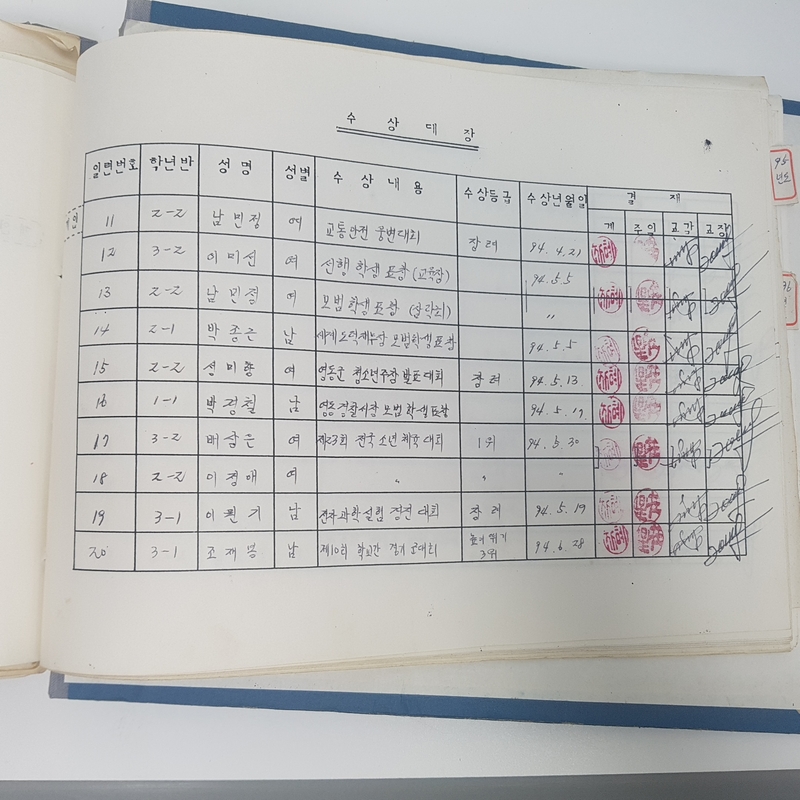 수 상 대 장
일련번호 학년반 성명 성별 수상내용 수상등급 수상년월일 결재
계 주임 교감 교장
11 2-2 남민정 여 교통안전 웅변대회 장려 94.4.21
12 3-2 이미선 여 선행학생 표창 (교육장) 94.5.5
13 2-2 남민정 여 모범학생 표창 〃
14 2-1 박종근 남 모범학생표창 94.5.5
15 2-2 성미향 여 영동군 청소년주장 발표대회 장려 94.5.13
16 1-1 박정철 남 영동경찰서장 모범학생표창 94.5.17
17 3-2 여 제23회 전국 소년체육대회 1위 94.5.30
18 2-2 이정애 여 〃 〃 〃
19 3-1 이원기 남 전자과학실험 경진대회 장려 94.5.19
20 3-1 조재봉 남 제10회 학교간 경기대회 높이뛰기
3위 94.6.28
95
년도
96